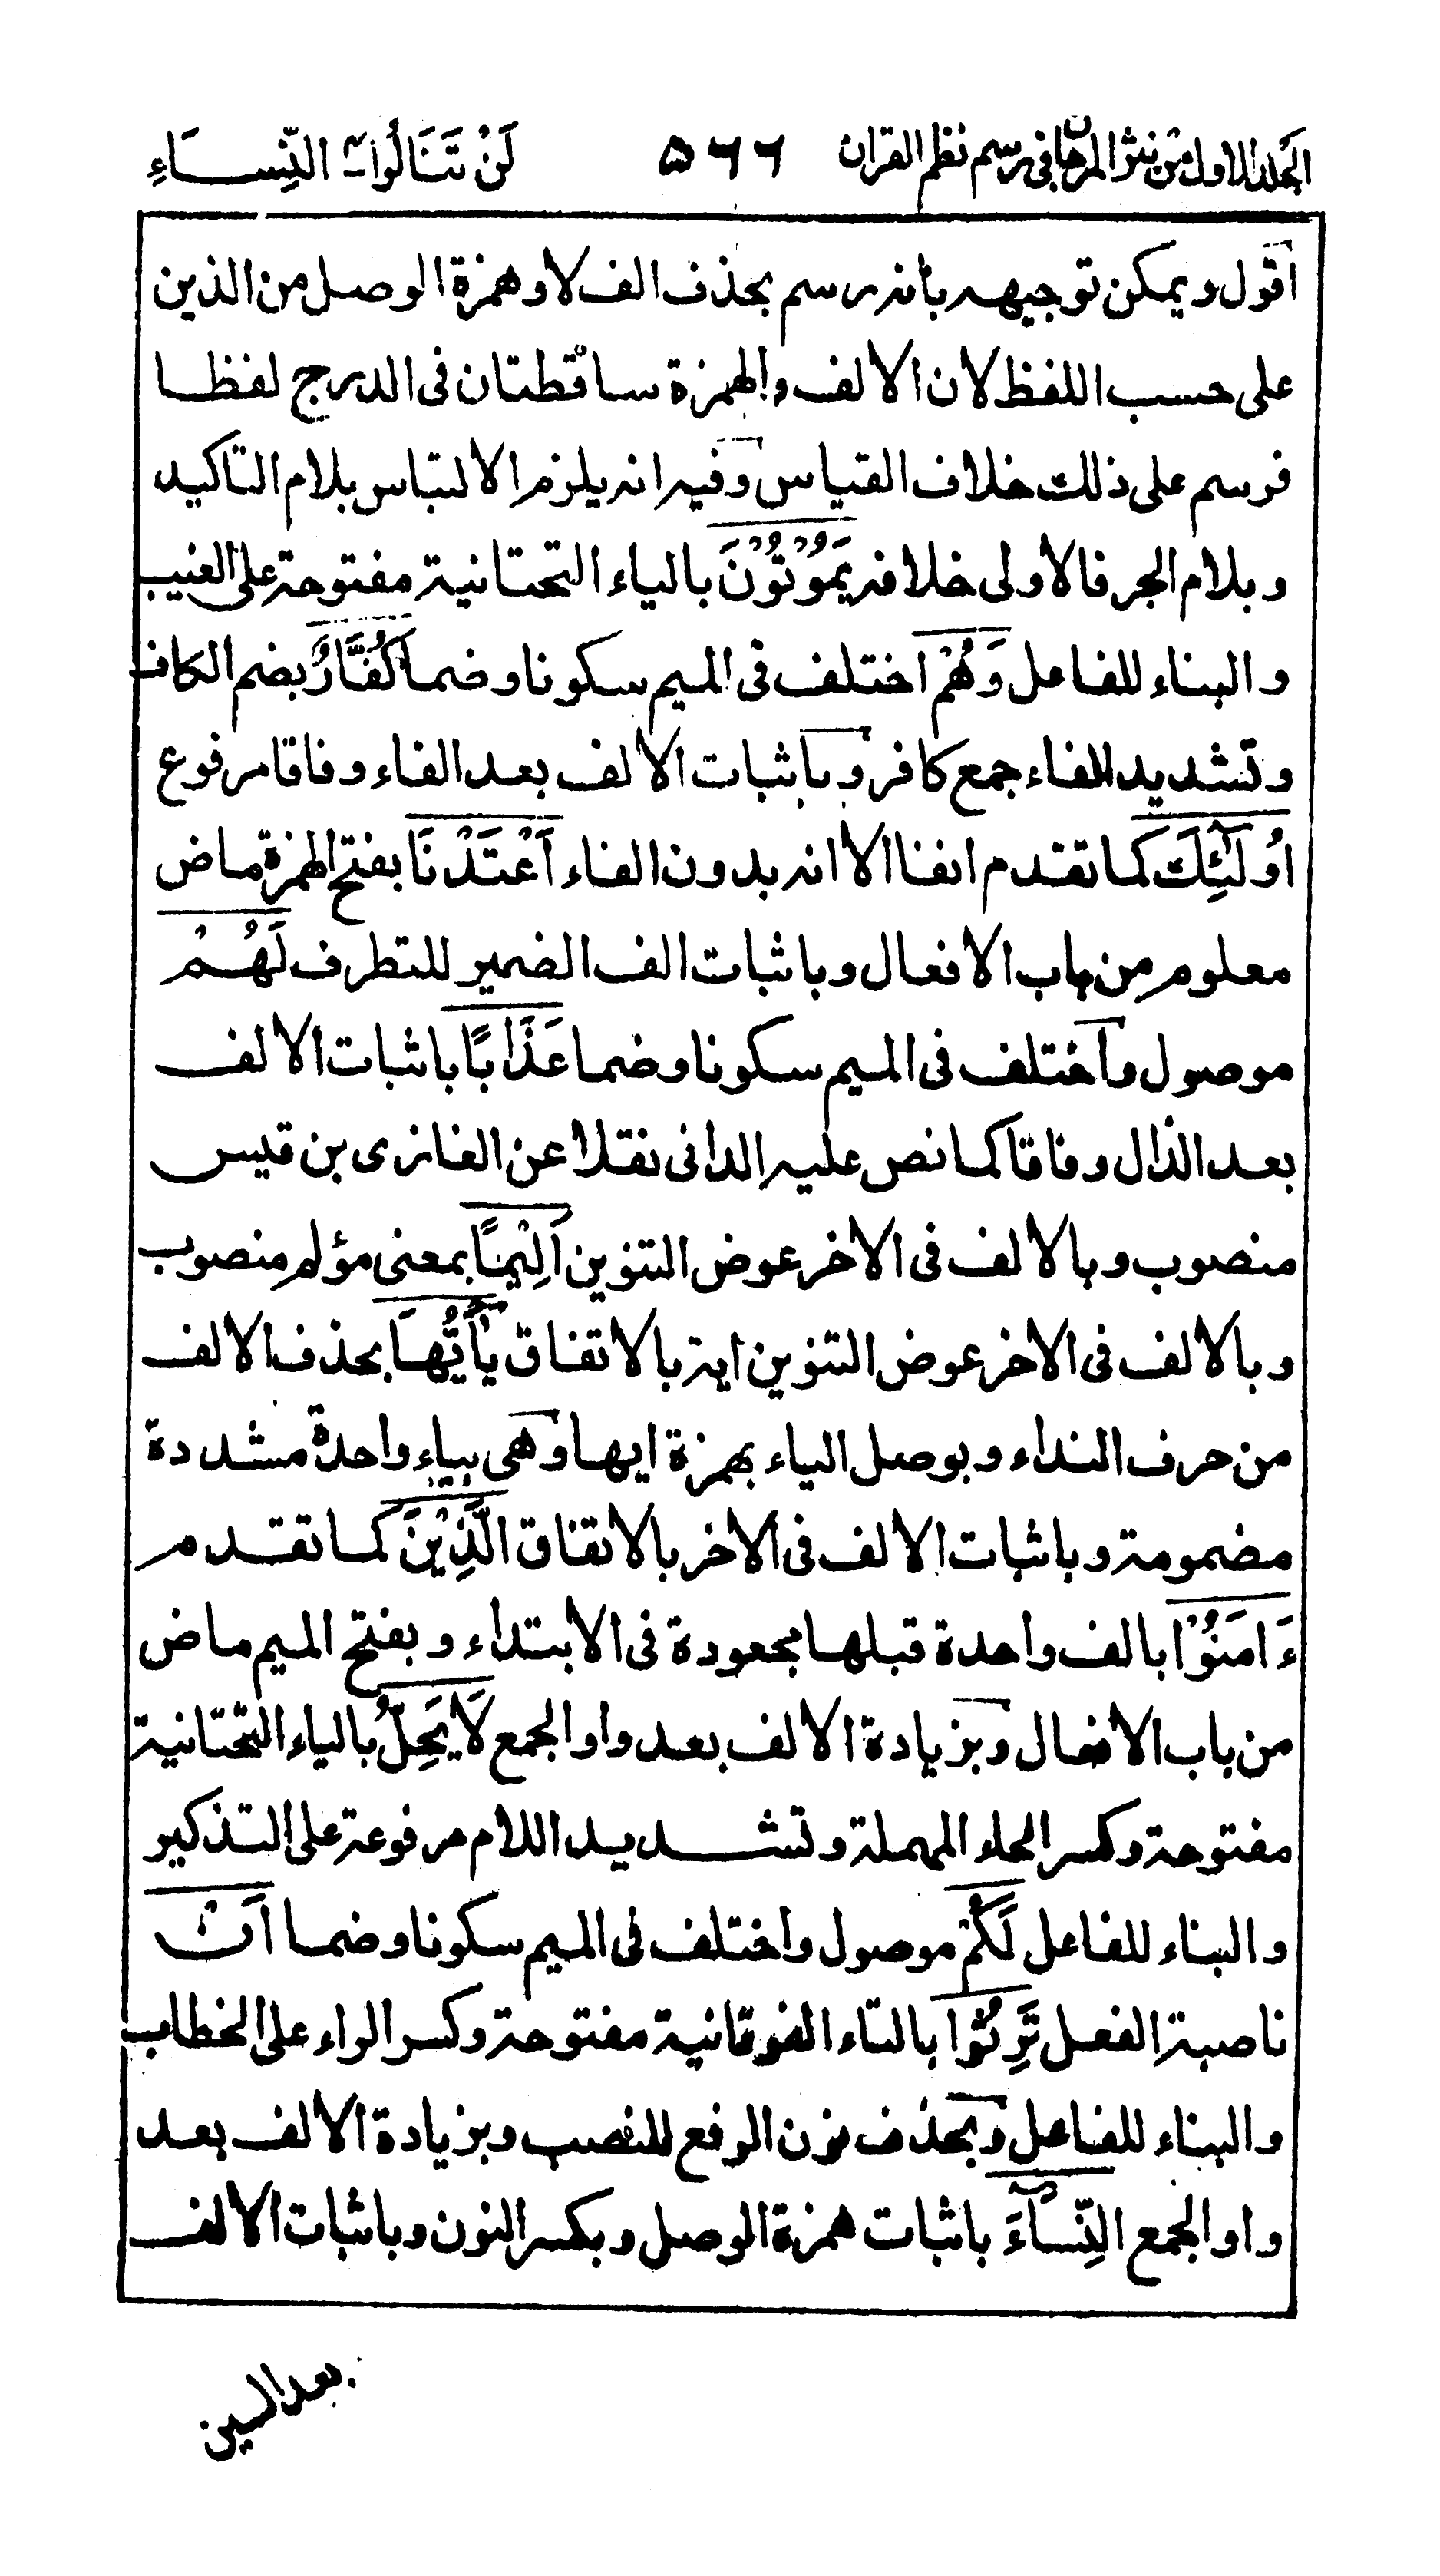 الجلد الاول من نثر المرجان فى رسم نظم القران ۵۶۶ لَنْ تَنَالُوا۴ النِّسَاءِ
اقول ويمكن توجيهه بانه رسم بحذف الف لا وهمزة الوصل من الذين
على حسب اللفظ لان الالف والهمزة ساقطتان فى الدرج لفظا
فرسم على ذلك خلاف القياس وفيه انه يلزم الالتباس بلام التاكيد
وبلام الجر فالاولى خلافه يَمُوْتُوْنَ بالياء التحتانية مفتوحة على الغيب
والبناء للفاعل وَهُمْ اختلف فى الميم سكونا وضما كُفَّارٌ بضم الكاف
وتشديد الفاء جمع كافر وباثبات الالف بعد الفاء وفاقا مرفوع
اُولٰٓئِكَ كما تقدم انفا الا انه بدون الفاء اَعْتَدْنَا بفتح الهمزة ماض
معلوم من باب الافعال وباثبات الف الضمير للتطرف لَهُمْ
موصول واختلف فى الميم سكونا وضما عَذَابًا باثبات الالف
بعد الذال وفاقا كما نص عليه الدانى نقلا عن الغازى بن قيس
منصوب وبالالف فى الاخر عوض التنوين اَلِيْمًا بمعنى مؤلم منصوب
وبالالف فى الاخر عوض التنوين اية بالاتفاق يٰٓاَيُّهَا بحذف الالف
من حرف النداء وبوصل الياء بهمزة ايها وهى بياء واحدة مشددة
مضمومة وباثبات الالف فى الاخر بالاتفاق الَّذِيْنَ كما تقدم
ءَامَنُوْا بالف واحدة قبلها مجعودة فى الابتداء وبفتح الميم ماض
من باب الافعال وبزيادة الالف بعد واو الجمع لَا يَحِلُّ بالياء التحتانية
مفتوحة وكسر الحاء المهملة وتشديد اللام مرفوعة على التذكير
والبناء للفاعل لَكُمْ موصول واختلف فى الميم سكونا وضما اَنْ
ناصبة الفعل تَرِثُوْا بالتاء الفوقانية مفتوحة وكسر الراء على الخطاب
والبناء للفاعل وبحذف نون الرفع للنصب وبزيادة الالف بعد
واو الجمع النِّسَآءَ باثبات همزة الوصل وبكسر النون وباثبات الالف
بعد السين